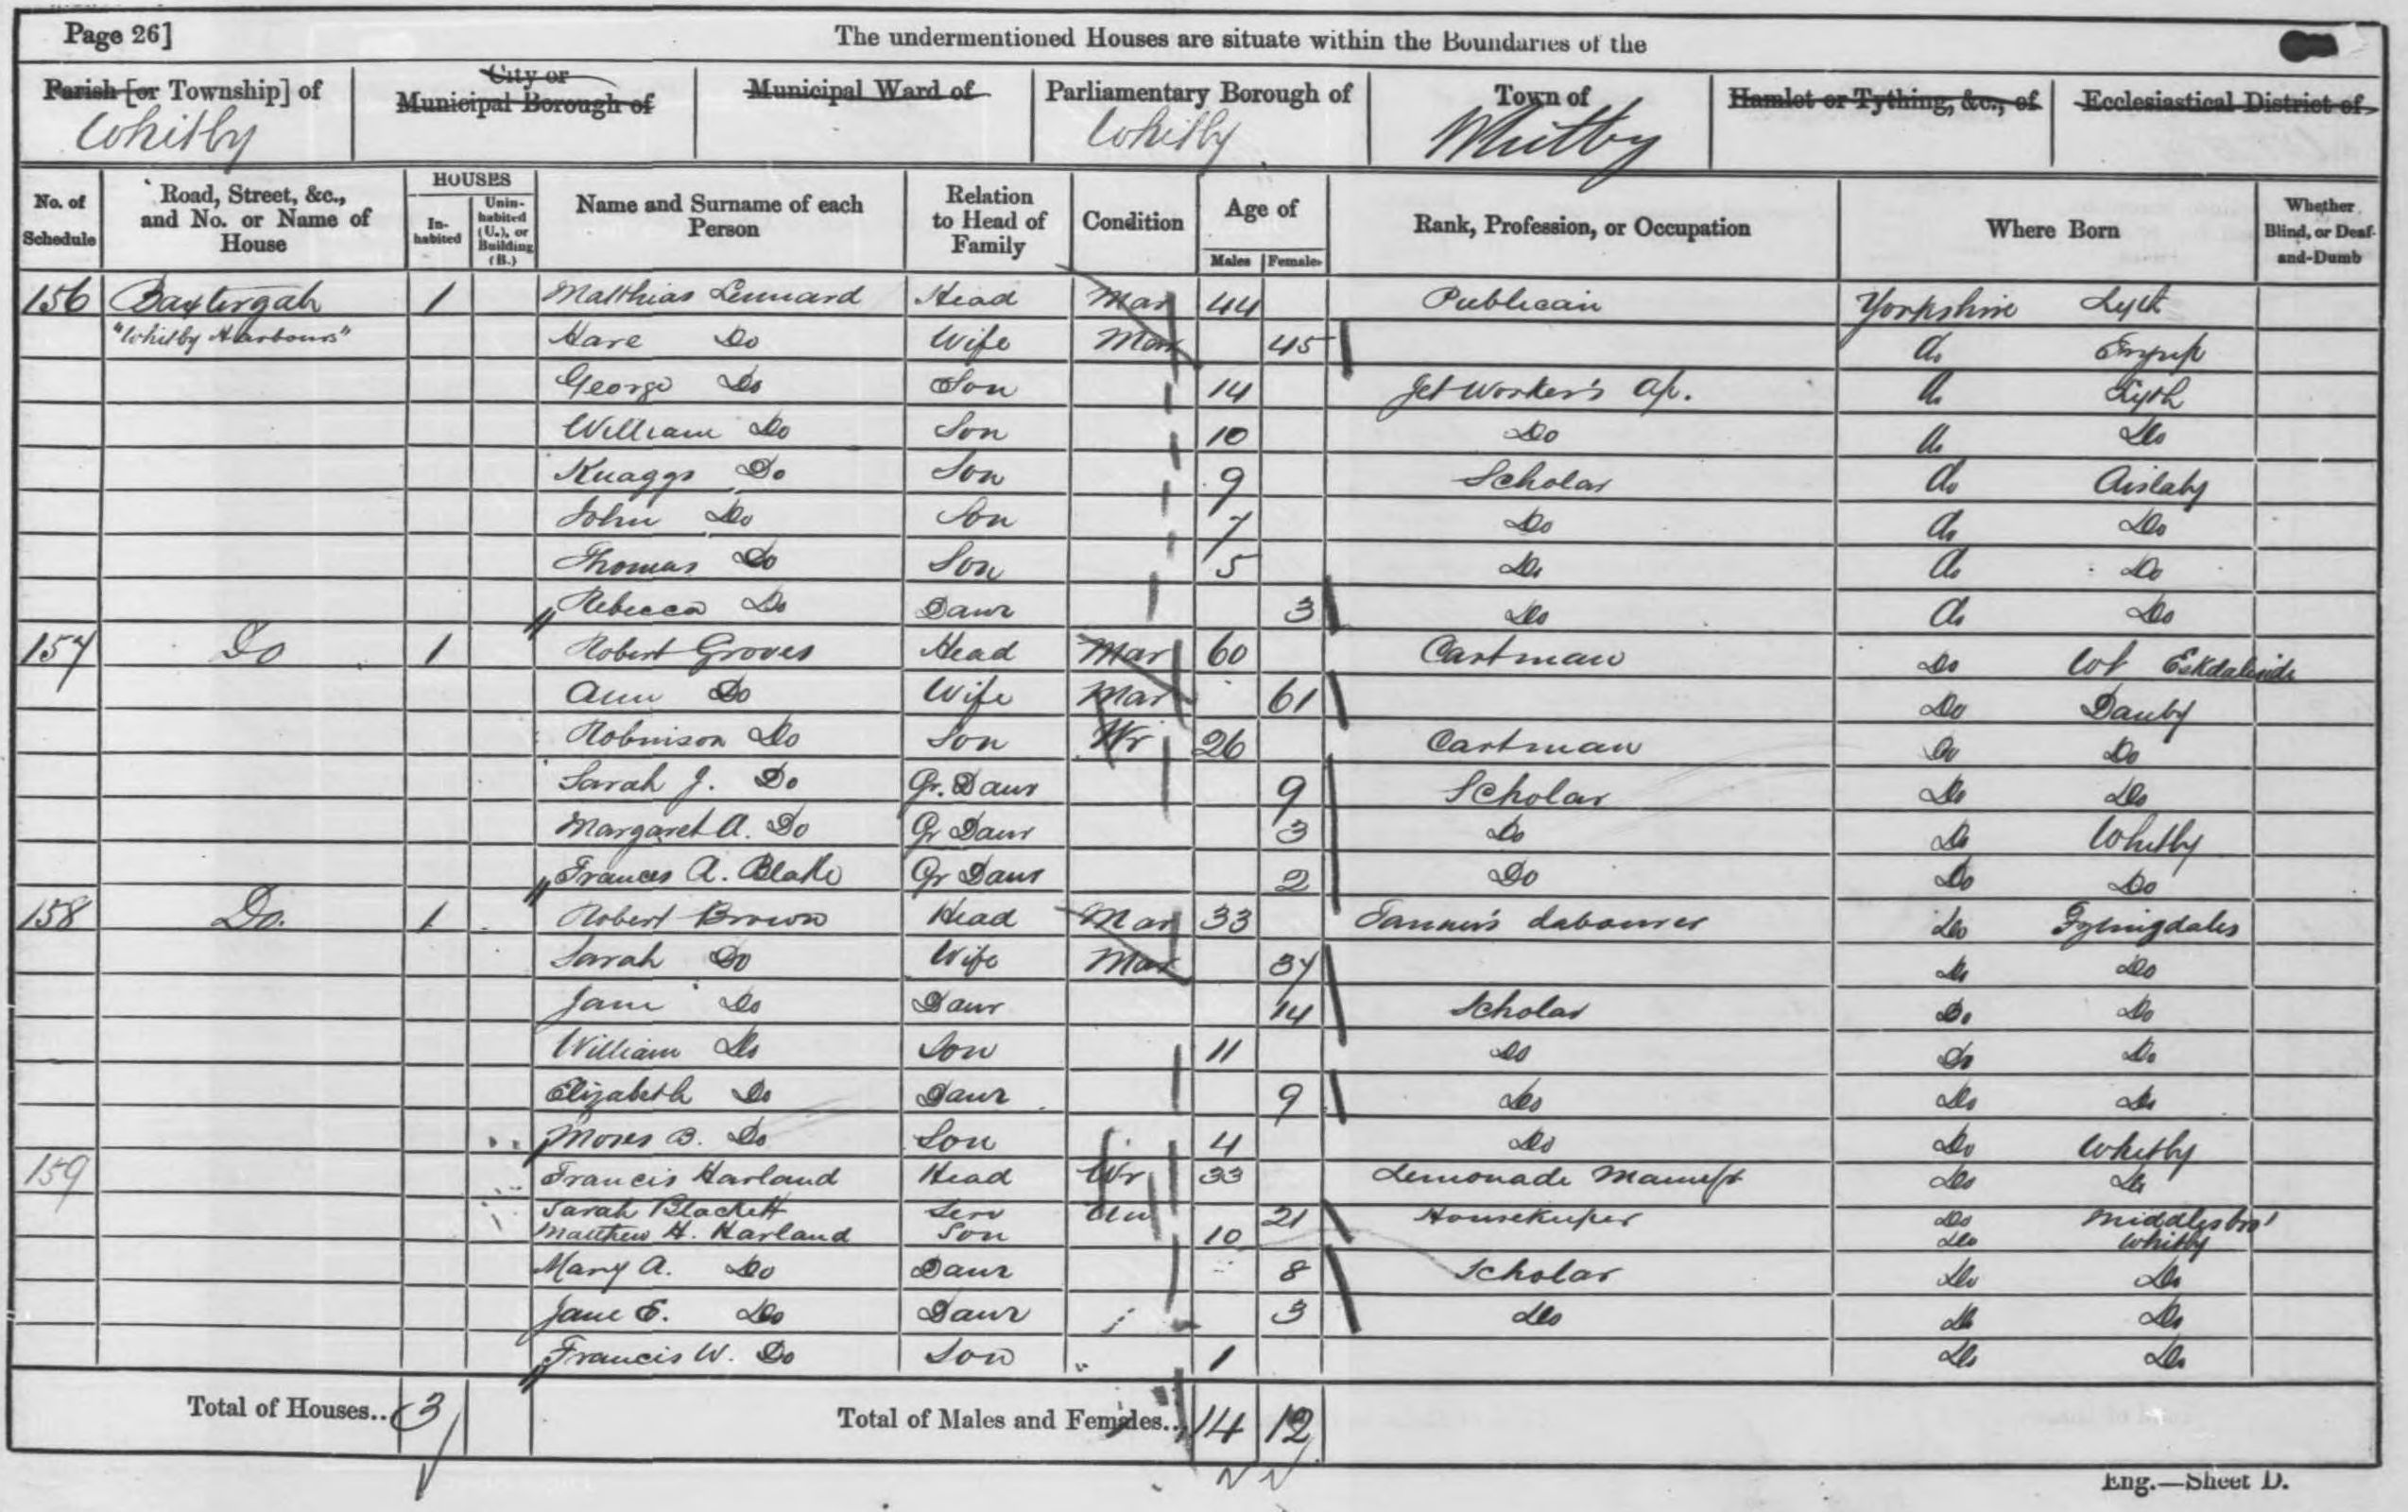 Page 26]
The undermentioned Houses are situate within the Boundaries of the
Parish [or Township] of
City or Municipal Borough of
Municipal Ward of
Parliamentary Borough of
Town of
Hamlet or Tything, &c., of
Ecclesiastical District of
Whitby Whitby Whitby
No. of Schedule
Road, Street, &c., and No. or Name of House
HOUSES
In-habited
Unin-habited (U.), or Building (B.)
Name and Surname of each Person
Relation to Head of Family
Condition
Age of
Males Females
Rank, Profession, or Occupation
Where Born
Whether Blind, or Deaf-and-Dumb
156 Baxtergate 1 Matthias Lennard Head Mar 44 Publican Yorkshire Lyth
"Whitby Harbours" Hare Do Wife Mar 45 do
George Do Son 14 Jet Worker's Ap. do Lyth
William Do Son 10 Do do Do
Knaggs Do Son 9 Scholar do Aislaby
John Do Son 7 Do do Do
Thomas Do Son 5 Do do Do
Rebecca Do Daur 3 Do do Do
157 Do 1 Robert Groves Head Mar 60 Cartman Do Eskdaleside
Ann Do Wife Mar 61 Do Danby
Robinson Do Son Wr 26 Cartman Do Do
Sarah J. Do Gr. Daur 9 Scholar Do Do
Margaret A. Do Gr Daur 3 Do Do Whitby
Frances A. Blake Gr Daur 2 Do Do Do
158 Do. 1 Robert Brown Head Mar 33 Tanner's Labourer Do Fylingdales
Sarah Do Wife Mar 37 Do Do
Jane Do Daur 14 Scholar Do Do
William Do Son 11 Do Do Do
Elizabeth Do Daur 9 Do Do Do
Moses B. Do Son 4 Do Do Whitby
159 Francis Harland Head Wr 33 Lemonade Do Do
Sarah Blackett Serv Un 21 Housekeeper Do Middlesbro'
Matthew H. Harland Son 10 Do Whitby
Mary A. Do Daur 8 Scholar Do Do
Jane E. Do Daur 3 Do Do Do
Francis W. Do Son 1 Do Do
Total of Houses.. 3 Total of Males and Females.. 14 12
Eng.—Sheet D.